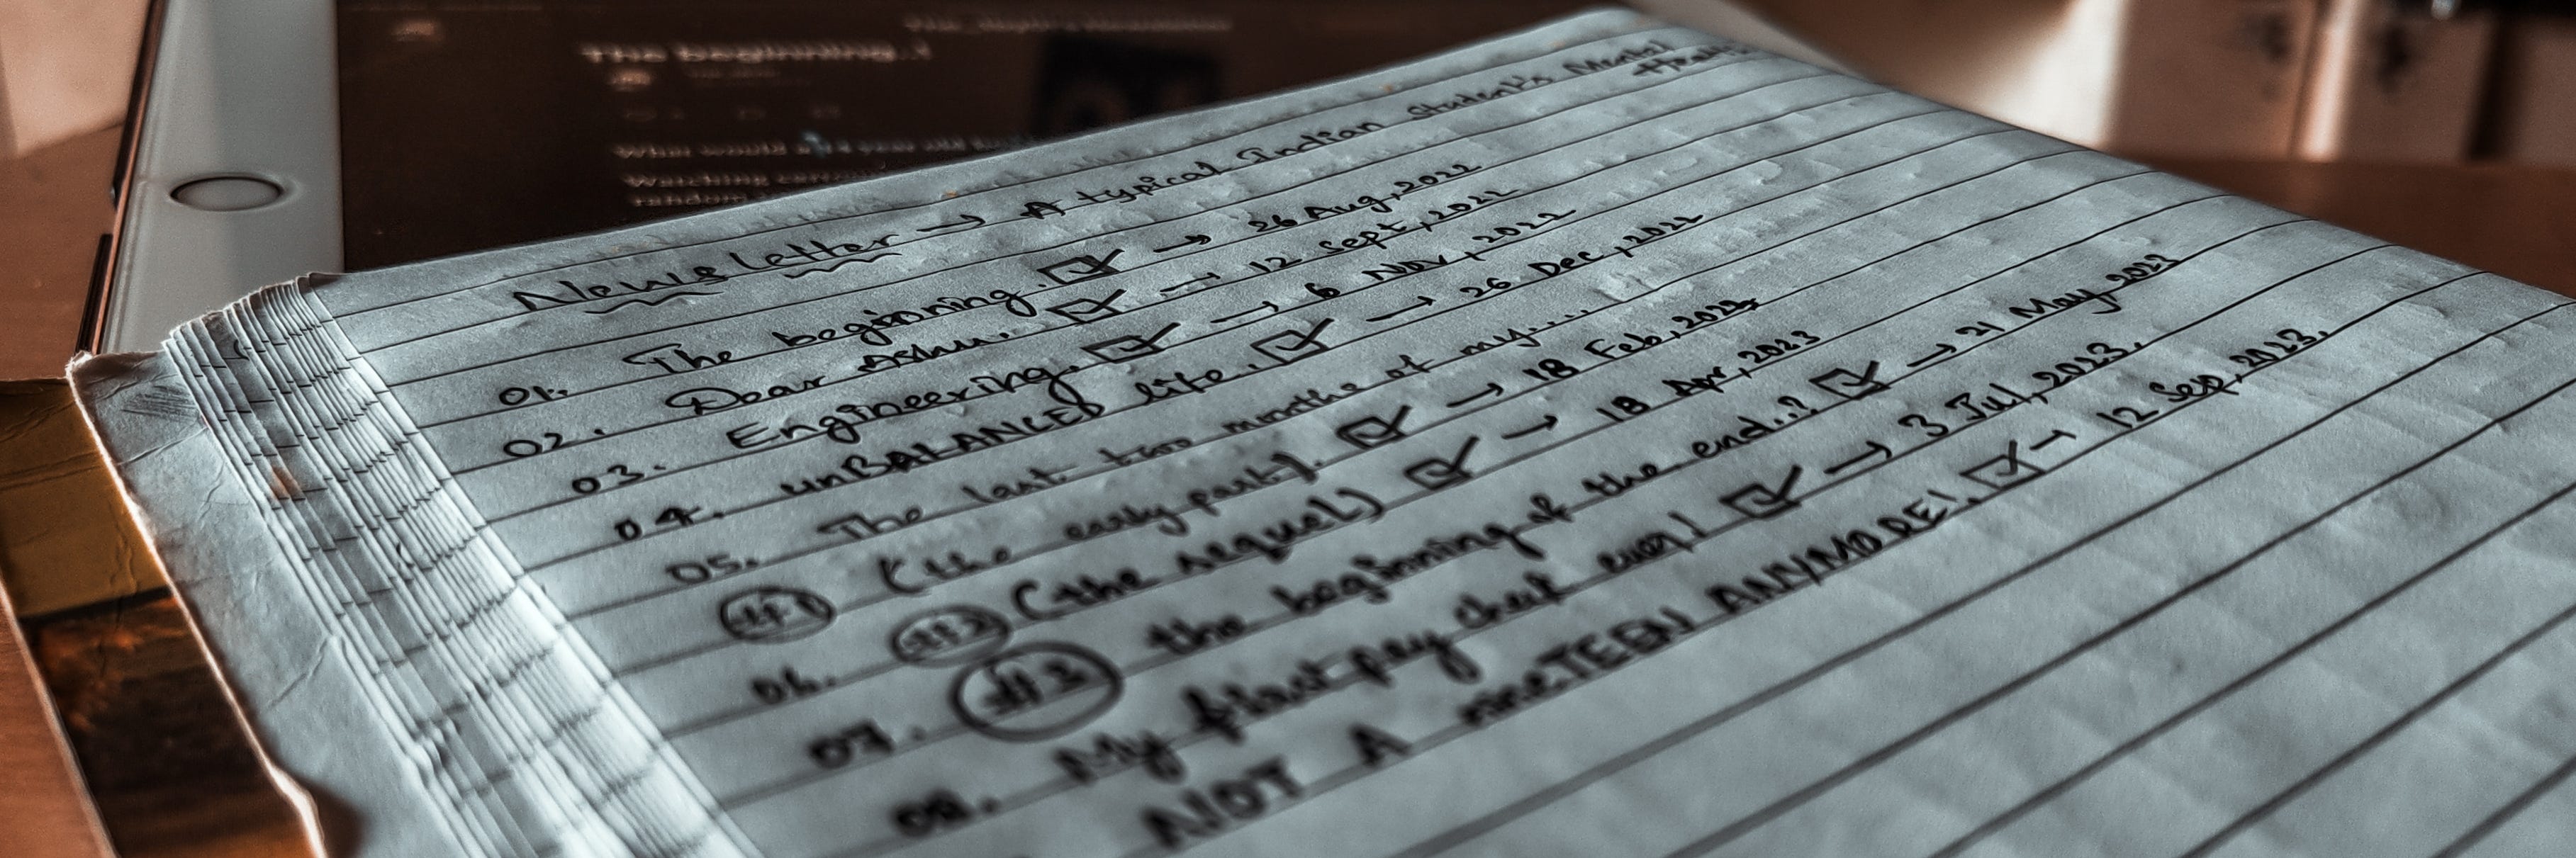 The beginning..!
What would a year old
Watching
random
Newsletter → A typical Indian Student's Mental
Health
01. The beginning. ☑ → 26 Aug, 2022
02. Dear Ashu. ☑ → 12 Sept, 2022
03. Engineering. ☑ → 6 Nov, 2022
04. unBALANCED life. ☑ → 26 Dec, 2022
05. The last two months of my....
#1 (the early part). ☑ → 18 Feb, 2023
06. #2 (the sequel) ☑ → 18 Apr, 2023
07. #3 the beginning of the end..? ☑ → 21 May 2023
08. My pay check ever! ☑ → 3 Jul, 2023.
NOT A nineTEEN ANYMORE!. ☑ → 12 Sep, 2023.